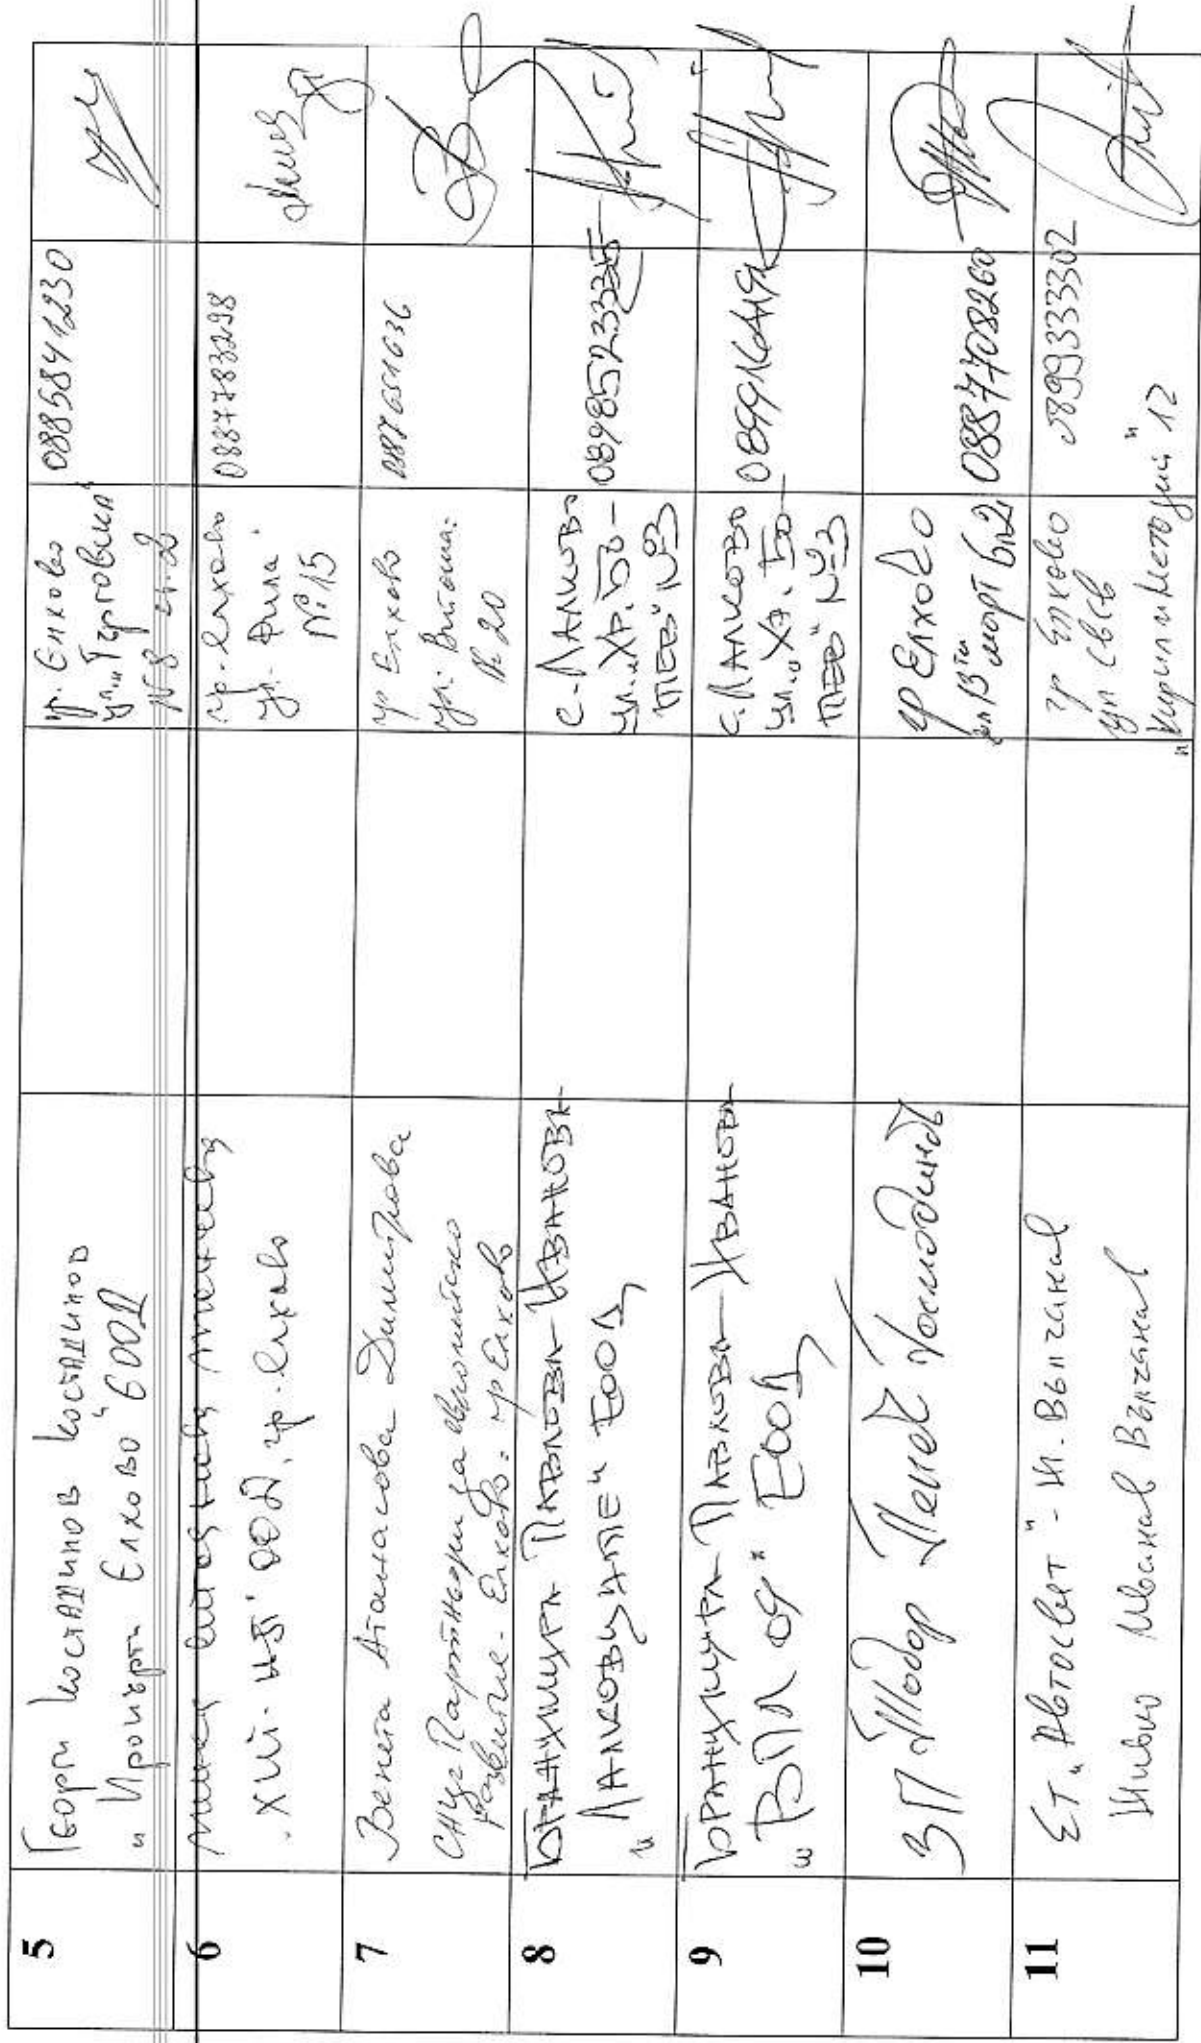 5
Георги Костадинов Костадинов
"Пропърти Елхово" ЕООД
гр. Елхово
ул. "Търговска"
N 8
0885841230
6
ООД, гр. Елхово
гр. Елхово
ул.
№ 15
0887783298
7
Венета Атанасова Димитрова
СНЦ Партньори за икономическо
развитие - Елхово: гр Елхово
гр Елхово
ул: Витоша:
№ 20
0887651636
8
Бранимира Павлова Иванова
"Лалковцале" ЕООД
с. Лалково
ул. "Хр. Бо-
тев" №3
0898523335
9
Бранимира Павлова Иванова
"ВПЛ 09" ЕООД
с. Лалково
ул. "Хр. Бо-
тев" №3
10
ЗП Тодор Пенев Господинов
гр Елхово
бл 2
0887708260
11
ЕТ "Автосвят" - Ж. Вълчанов
Живко Иванов Вълчанов
гр Елхово
ул Св св
"Кирил и Методий" 12
0899333302